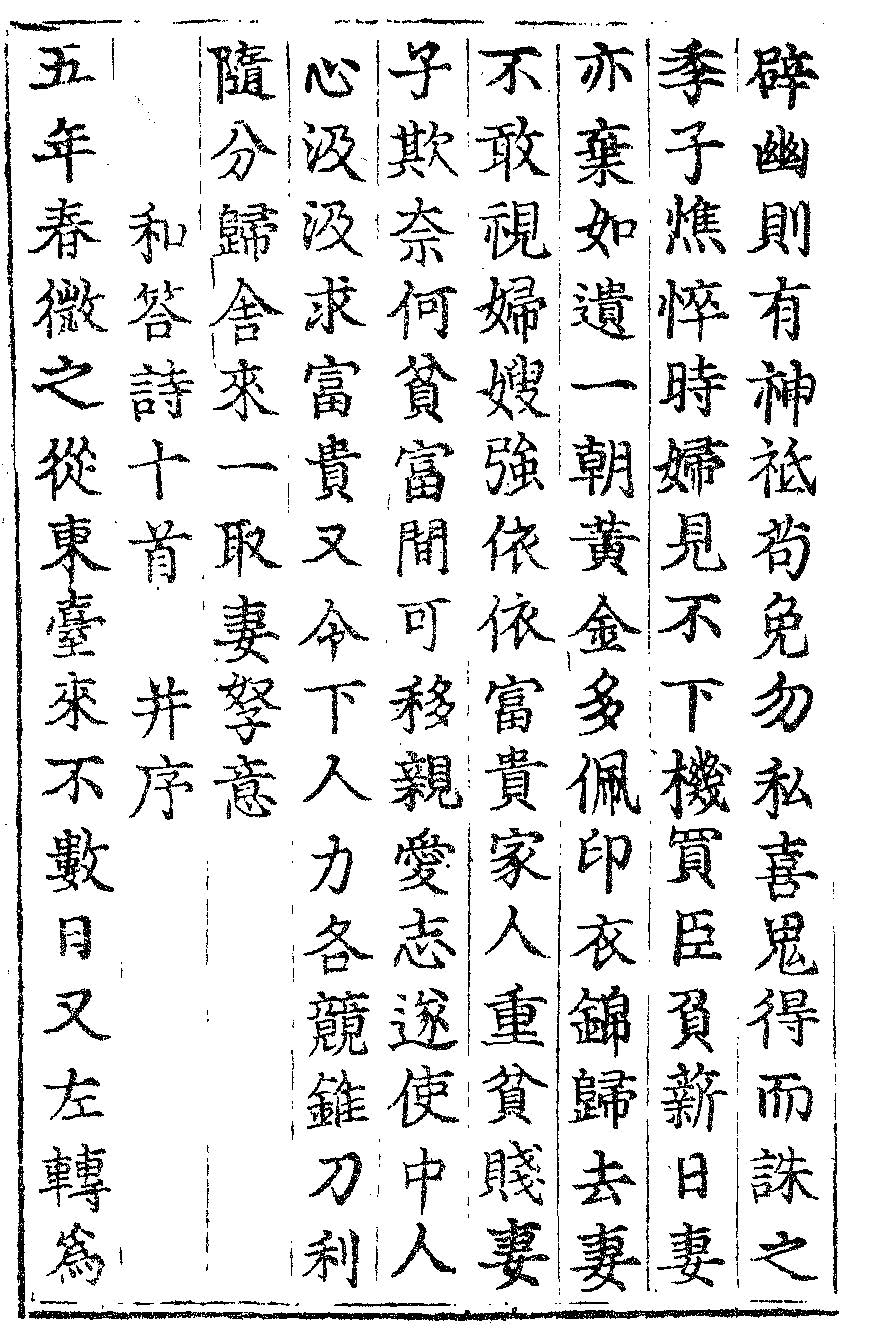 辟幽則有神祇苟免勿私喜鬼得而誅之
季子憔悴時婦見不下機買臣負薪日妻
亦棄如遺一朝黃金多佩印衣錦歸去妻
不敢視婦嫂強依依富貴家人重貧賤妻
子欺奈何貧富間可移親愛志遂使中人
心汲汲求富貴又令下人力各競錐刀利
隨分歸舍來一取妻孥意
和答詩十首 并序
五年春微之從東臺來不數日又左轉爲